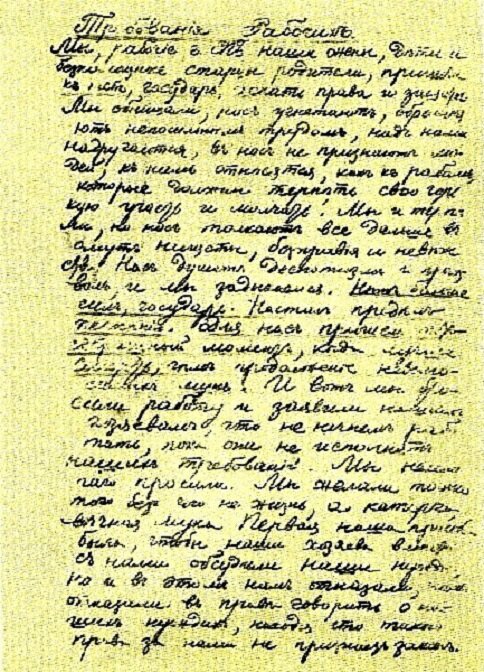 Требованія Рабочихъ.
Мы, рабочіе г. СПБ наши жены, дѣти и
старцы родители, пришли
къ тебѣ, государь, искати правды и защиты
Мы обнищали, насъ угнетаютъ, обременя
ютъ непосильнымъ трудомъ, надъ нами
надругаются, въ насъ не признаютъ лю
дей, къ намъ относятся, какъ къ рабамъ,
которые должны терпѣть свою горь
кую участь и молчать! Мы и терпѣ
ли, но насъ толкаютъ все дальше въ
омутъ нищеты, безправія и невѣже
ства. Насъ душитъ деспотизмъ и произ
волъ, и мы задыхаемся. Нѣтъ больше
силъ, государь. Насталъ предѣлъ
терпѣнія. Для насъ пришелъ тотъ
моментъ, когда лучше
смерть, чѣмъ продолженіе невыно
симыхъ мукъ. И вотъ мы бро
сили работу и заявили нашимъ
хозяевамъ, что не начнемъ рабо
тать, пока они не исполнятъ
нашихъ требованій. Мы немно
гаго просили. Мы желали только
того безъ чего не жизнь, а каторга
вѣчная мука. Первая наша просьба
была, чтобы наши хозяева вмѣстѣ
съ нами обсудили наши нужды
но и въ этомъ намъ отказали,
отказали въ правѣ говорить о на
шихъ нуждахъ, находя что такого
права за нами не признаетъ законъ.